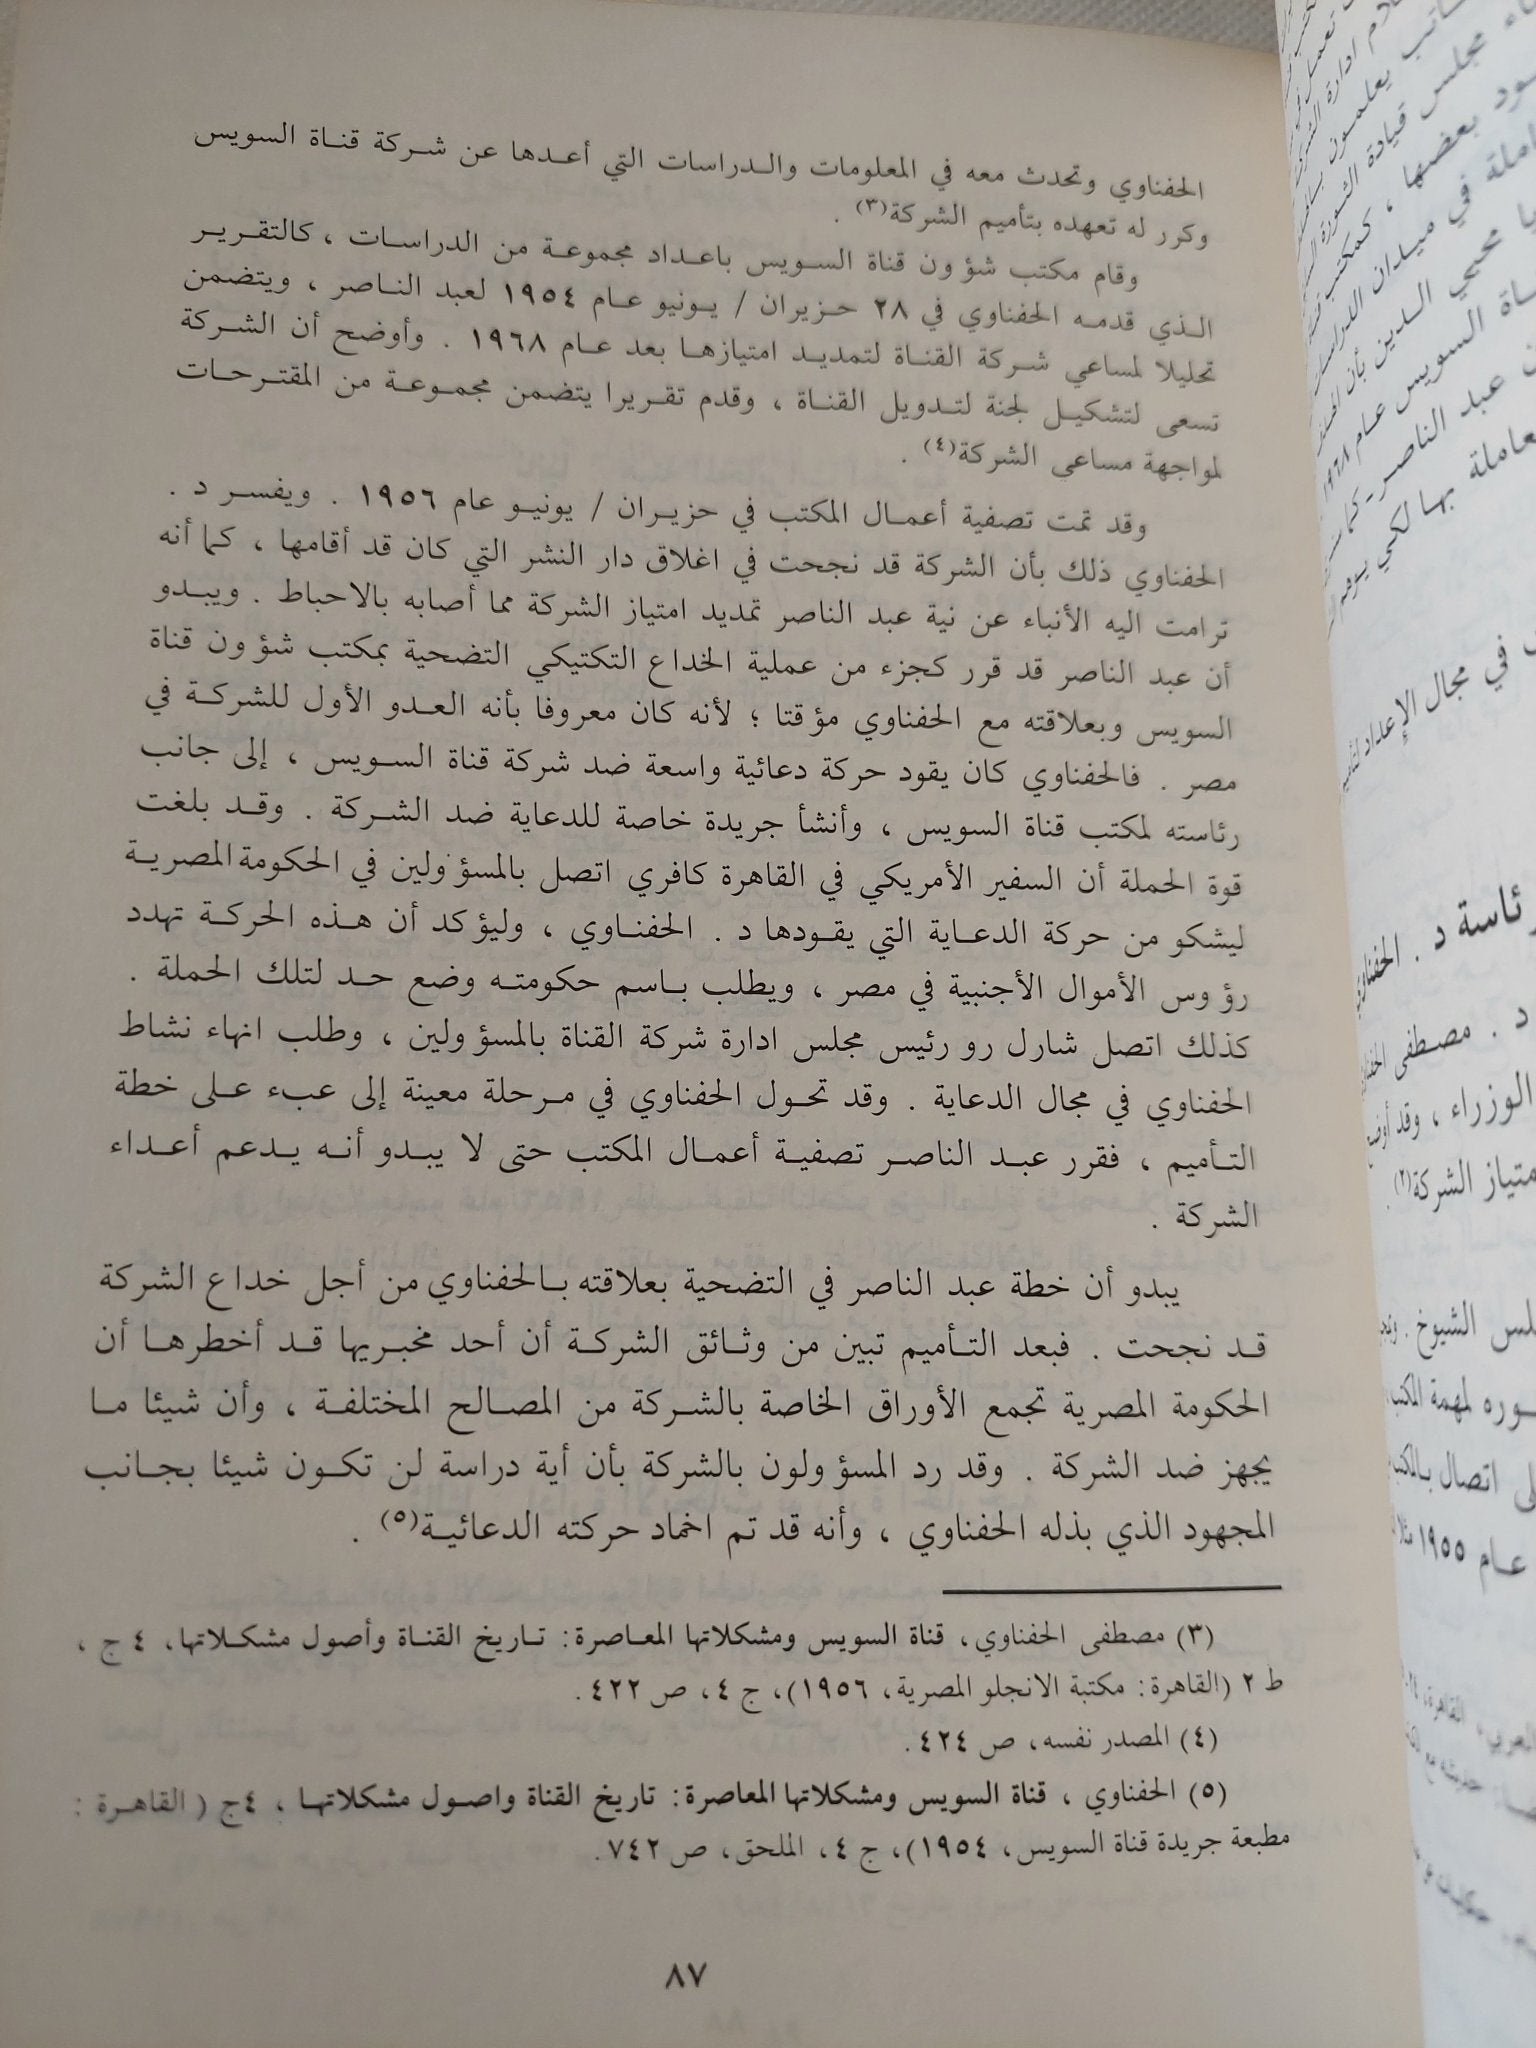 الحفناوي وتحدث معه في المعلومات والدراسات التي أعدها عن شركة قناة السويس
وكرر له تعهده بتأميم الشركة(٣) .
وقام مكتب شؤون قناة السويس باعداد مجموعة من الدراسات ، كالتقرير
الذي قدمه الحفناوي في ٢٨ حزيران / يونيو عام ١٩٥٤ لعبد الناصر ، ويتضمن
تحليلا لمساعي شركة القناة لتمديد امتيازها بعد عام ١٩٦٨ . وأوضح أن الشركة
تسعى لتشكيل لجنة لتدويل القناة ، وقدم تقريرا يتضمن مجموعة من المقترحات
لمواجهة مساعى الشركة(٤) .
وقد تمت تصفية أعمال المكتب في حزيران / يونيو عام ١٩٥٦ . ويفسر د .
الحفناوي ذلك بأن الشركة قد نجحت في اغلاق دار النشر التي كان قد أقامها ، كما أنه
ترامت اليه الأنباء عن نية عبد الناصر تمديد امتياز الشركة مما أصابه بالاحباط . ويبدو
أن عبد الناصر قد قرر كجزء من عملية الخداع التكتيكي التضحية بمكتب شؤون قناة
السويس وبعلاقته مع الحفناوي مؤقتا ؛ لأنه كان معروفا بأنه العدو الأول للشركة في
مصر . فالحفناوي كان يقود حركة دعائية واسعة ضد شركة قناة السويس ، إلى جانب
رئاسته لمكتب قناة السويس ، وأنشأ جريدة خاصة للدعاية ضد الشركة . وقد بلغت
قوة الحملة أن السفير الأمريكي في القاهرة كافري اتصل بالمسؤولين في الحكومة المصرية
ليشكو من حركة الدعاية التي يقودها د . الحفناوي ، وليؤكد أن هذه الحركة تهدد
رؤوس الأموال الأجنبية في مصر ، ويطلب باسم حكومته وضع حد لتلك الحملة .
كذلك اتصل شارل رو رئيس مجلس ادارة شركة القناة بالمسؤولين ، وطلب انهاء نشاط
الحفناوي في مجال الدعاية . وقد تحول الحفناوي في مرحلة معينة إلى عبء على خطة
التأميم ، فقرر عبد الناصر تصفية أعمال المكتب حتى لا يبدو أنه يدعم أعداء
الشركة .
يبدو أن خطة عبد الناصر في التضحية بعلاقته بالحفناوي من أجل خداع الشركة
قد نجحت . فبعد التأميم تبين من وثائق الشركة أن أحد مخبريها قد أخطرها أن
الحكومة المصرية تجمع الأوراق الخاصة بالشركة من المصالح المختلفة ، وأن شيئا ما
يجهز ضد الشركة . وقد رد المسؤولون بالشركة بأن أية دراسة لن تكون شيئا بجانب
المجهود الذي بذله الحفناوي ، وأنه قد تم اخماد حركته الدعائية(٥) .
(٣) مصطفى الحفناوي، قناة السويس ومشكلاتها المعاصرة: تاريخ القناة وأصول مشكلاتها، ٤ ج ،
ط ٢ (القاهرة: مكتبة الانجلو المصرية، ١٩٥٦)، ج ٤، ص ٤٢٢.
(٤) المصدر نفسه، ص ٤٢٤.
(٥) الحفناوي ، قناة السويس ومشكلاتها المعاصرة: تاريخ القناة واصول مشكلاتها ، ٤ج ( القاهرة :
مطبعة جريدة قناة السويس، ١٩٥٤)، ج ٤، الملحق، ص ٧٤٢.
٨٧
مجلس قيادة الثورة
في ميدان الدراسات
محيي الدين بأن
السويس عام ١٩٦٨
عبد الناصر
في مجال الإعداد
د . الحفناوي
د . مصطفى
الوزراء ، وقد
الشركة(٢) .
الشيوخ .
لمهمة المكتب
اتصال بالمكتب
عام ١٩٥٥ مثلا